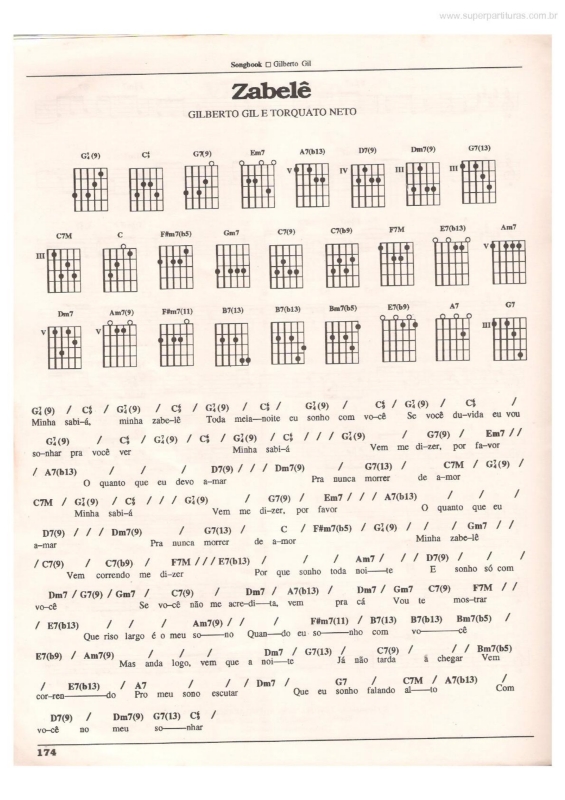 www.superpartituras.com.br
Songbook □ Gilberto Gil
Zabelê
GILBERTO GIL E TORQUATO NETO
G⁷₄(9) C⁶₉ G7(9) Em7 A7(b13) D7(9) Dm7(9) G7(13)
V IV III III
C7M C F#m7(b5) Gm7 C7(9) C7(b9) F7M E7(b13) Am7
III V
Dm7 Am7(9) F#m7(11) B7(13) B7(b13) Bm7(b5) E7(b9) A7 G7
V V III
G⁷₄(9) / C⁶₉ / G⁷₄(9) / C⁶₉ / G⁷₄(9) / C⁶₉ / G⁷₄(9) / C⁶₉ / G⁷₄(9) / C⁶₉ /
Minha sabi-á, minha zabe-lê Toda meia—noite eu sonho com vo-cê Se você du-vida eu vou
G⁷₄(9) / C⁶₉ / G⁷₄(9) / C⁶₉ / G⁷₄(9) / C⁶₉ / / / G⁷₄(9) / G7(9) / Em7 / /
so-nhar pra você ver Minha sabi-á Vem me di-zer, por fa-vor
/ A7(b13) / / / D7(9) / / / Dm7(9) / G7(13) / C7M / G⁷₄(9) /
O quanto que eu devo a-mar Pra nunca morrer de a-mor
C7M / G⁷₄(9) / C⁶₉ / / / G⁷₄(9) / G7(9) / Em7 / / / A7(b13) / / /
Minha sabi-á Vem me di-zer, por favor O quanto que eu
D7(9) / / / Dm7(9) / G7(13) / C / F#m7(b5) / G⁷₄(9) / / / Gm7 / /
a-mar Pra nunca morrer de a-mor Minha zabe-lê
/ C7(9) / C7(b9) / F7M / / / E7(b13) / / / Am7 / / / D7(9) / /
Vem correndo me di-zer Por que sonho toda noi—te E sonho só com
Dm7 / G7(9) / Gm7 / C7(9) / Dm7 / A7(b13) / Dm7 / Gm7 C7(9) F7M / /
vo-cê Se vo-cê não me acre-di—ta, vem pra cá Vou te mos-trar
/ E7(b13) / / / Am7(9) / / / F#m7(11) / B7(13) B7(b13) Bm7(b5) /
Que riso largo é o meu so—no Quan—do eu so—nho com vo—cê
E7(b9) / Am7(9) / / / Dm7 / G7(13) / C7(9) / / / Bm7(b5)
Mas anda logo, vem que a noi—te Já não tarda á chegar Vem
/ E7(b13) / A7 / / / Dm7 / G7 / C7M / A7(b13) /
cor-ren—do Pro meu sono escutar Que eu sonho falando al—to Com
D7(9) / Dm7(9) G7(13) C⁶₉ /
vo-cê no meu so—nhar
174